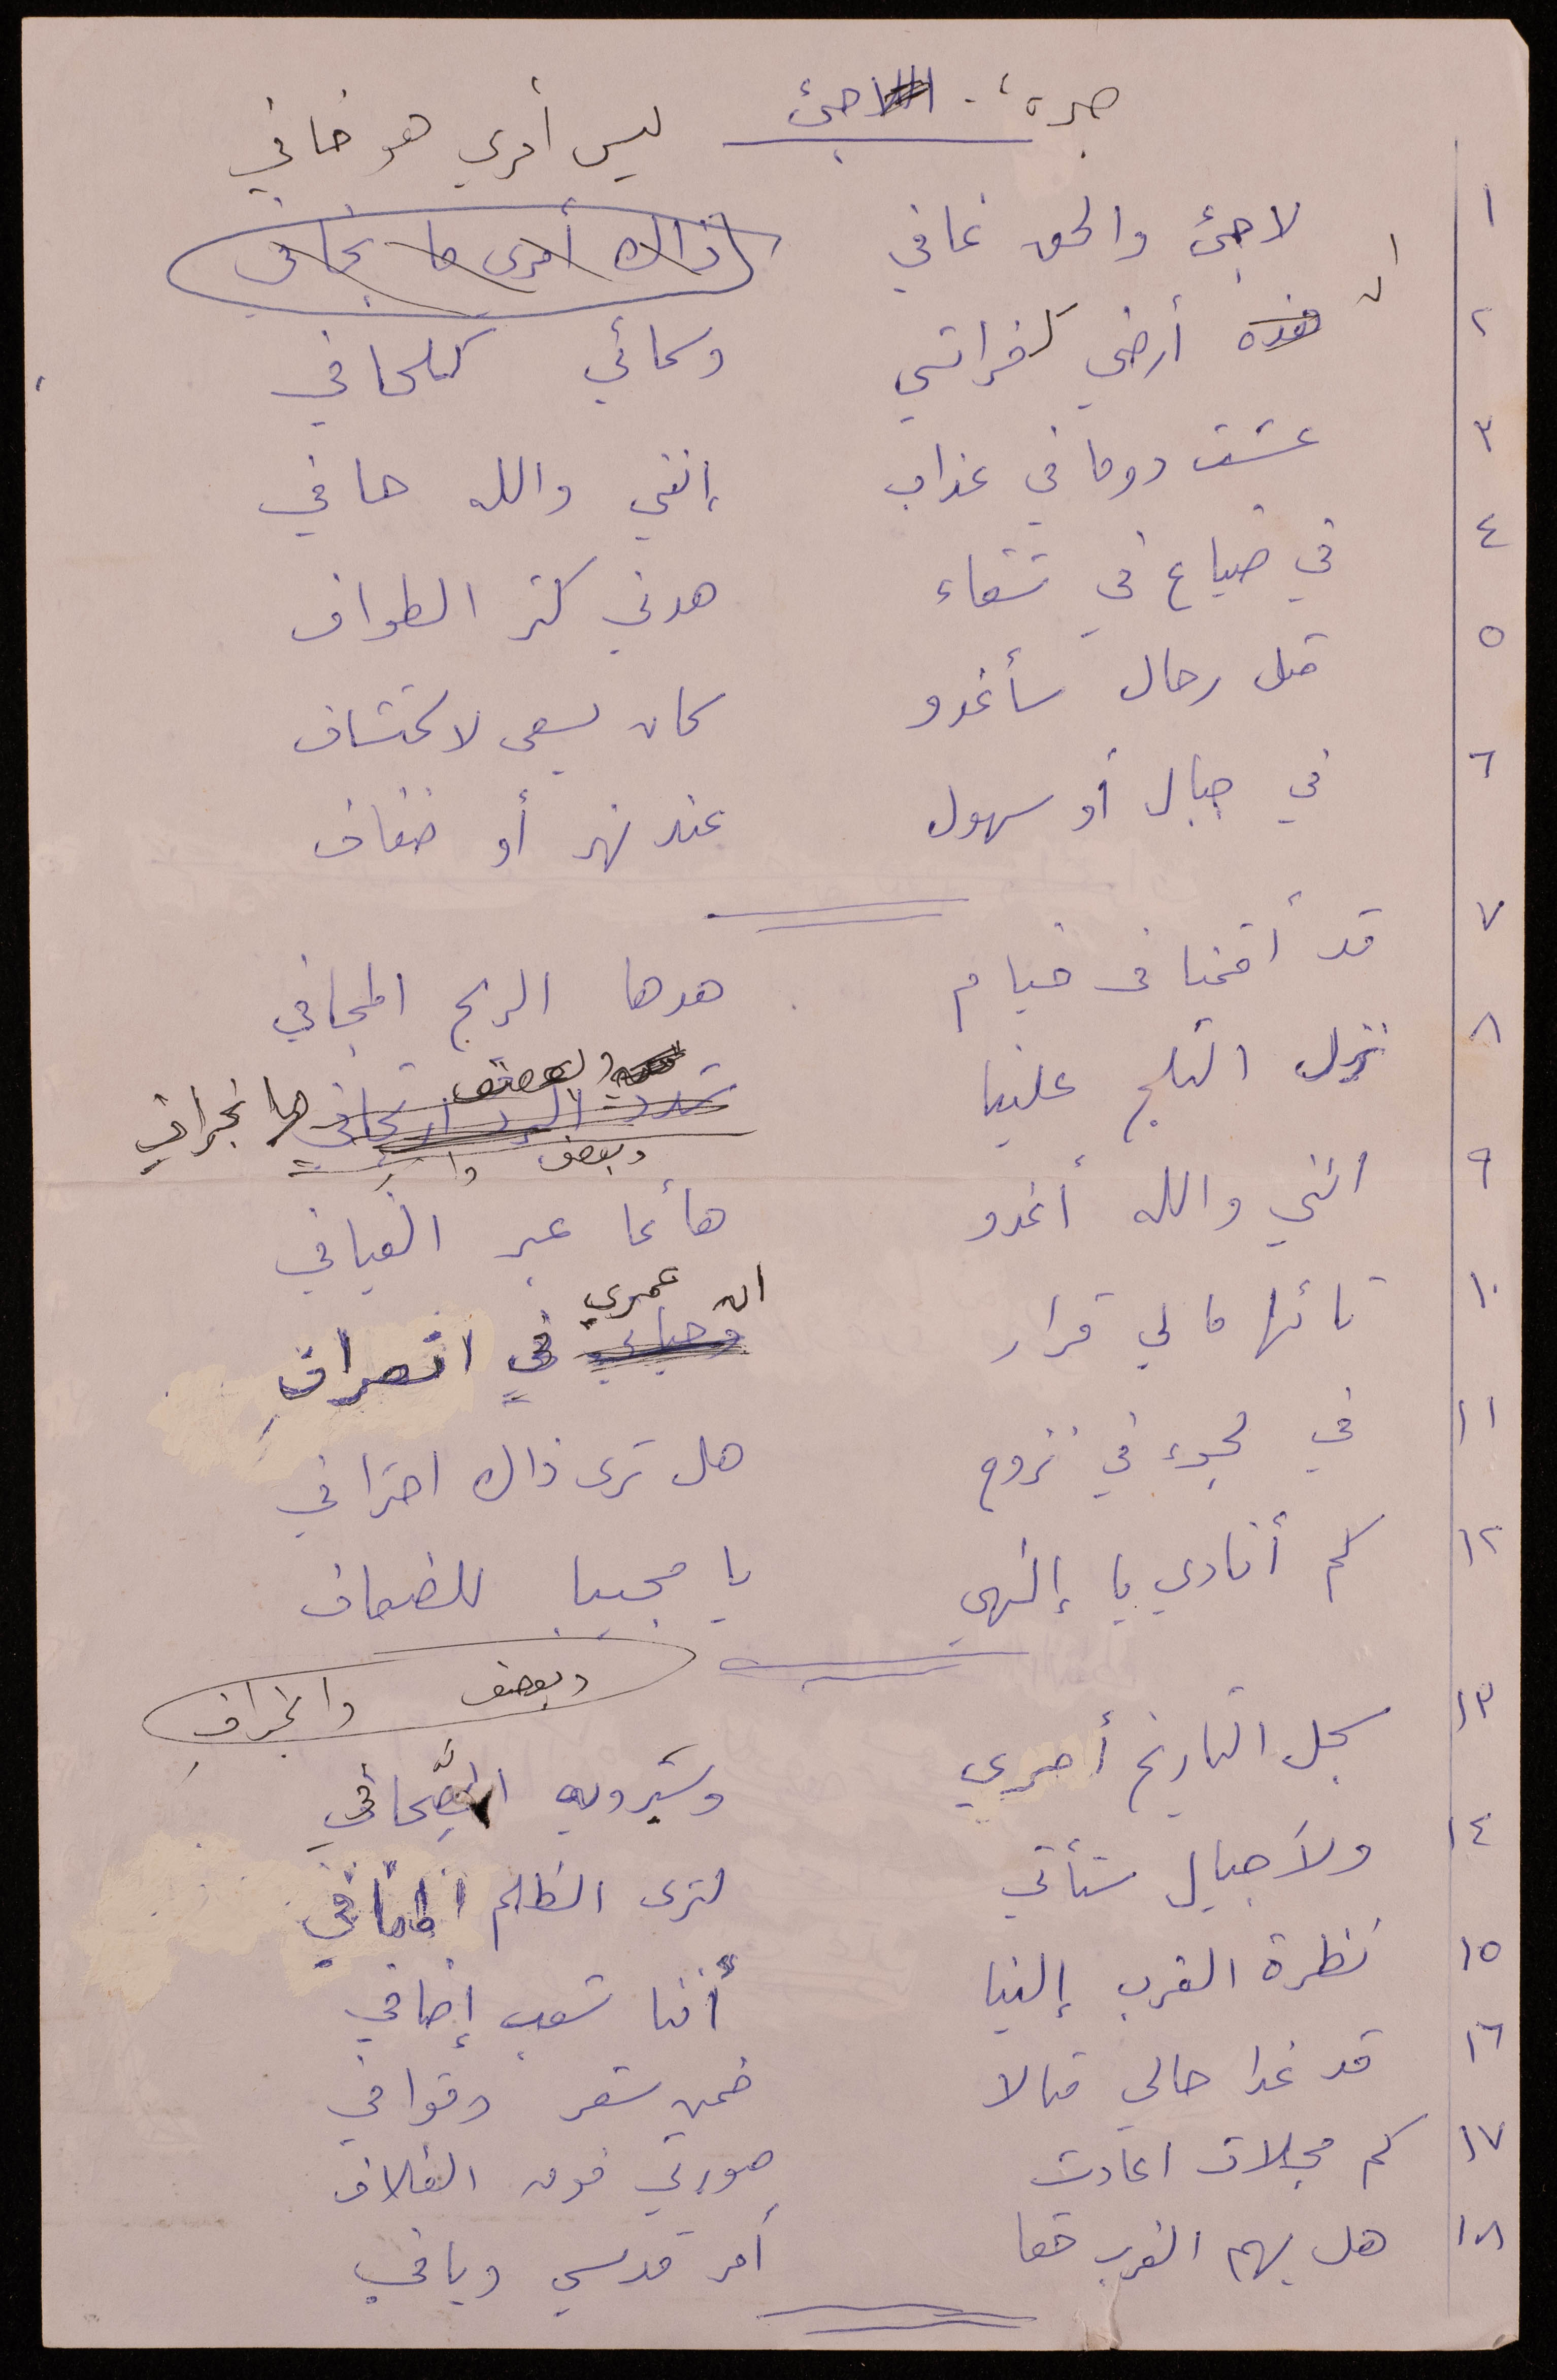 صبرة، لاجئ
ليس أمري هو خافي
١ لاجئ والحق غافي
ذاك أمري ما بخافي
٢ ان أرضي كفراتي وسمائي كلحافي
٣ عشت دوما في عذاب إنني والله حافي
٤ في ضياع في شقاء هدني كثر الطواف
٥ مثل رحال سأغدو كان يسعى لاكتشاف
٦ في جبال أو سهول عند نهر أو ضفاف
٧ قد أقمنا في خيام هدها الريح المجافي
٨ نزل الثلج علينا وبعصف وانجراف
وبعصف
٩ انني والله أغدو هائما عبر الفيافي
١٠ تائها ما لي قرار ان عمري في انصراف
١١ في لجوء في نزوح هل ترى ذاك احترافي
١٢ كم أنادي يا إلهي يا مجيبا للضعاف
وبعصف وانجراف
١٣ سجل التاريخ أمري وسيرويه الصحافي
١٤ ولأجيال ستأتي لترى الظلم المنافي
١٥ نظرة الغرب إلينا أننا شعب إضافي
١٦ قد غدا حالي مثالا ضمن شعر وقوافي
١٧ كم مجلات اعادت صورتي فوق الغلاف
١٨ هل يهم الغرب حقا أمر قدسي ويافي